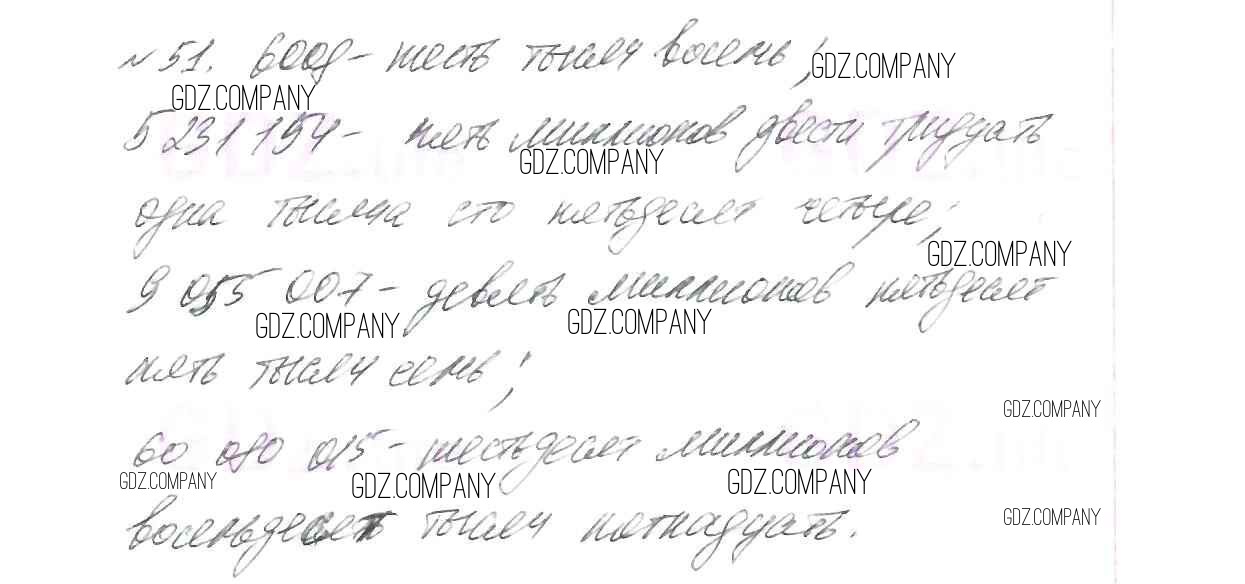 №51. 6008 - шесть тысяч восемь;
GDZ.COMPANY
GDZ.COMPANY
5 231 154 - пять миллионов двести тридцать
GDZ.COMPANY
одна тысяча сто пятьдесят четыре;
GDZ.COMPANY
9 055 007 - девять миллионов пятьдесят
GDZ.COMPANY GDZ.COMPANY
пять тысяч семь;
GDZ.COMPANY
60 080 015 - шестьдесят миллионов
GDZ.COMPANY GDZ.COMPANY GDZ.COMPANY
восемьдесят тысяч пятнадцать.
GDZ.COMPANY